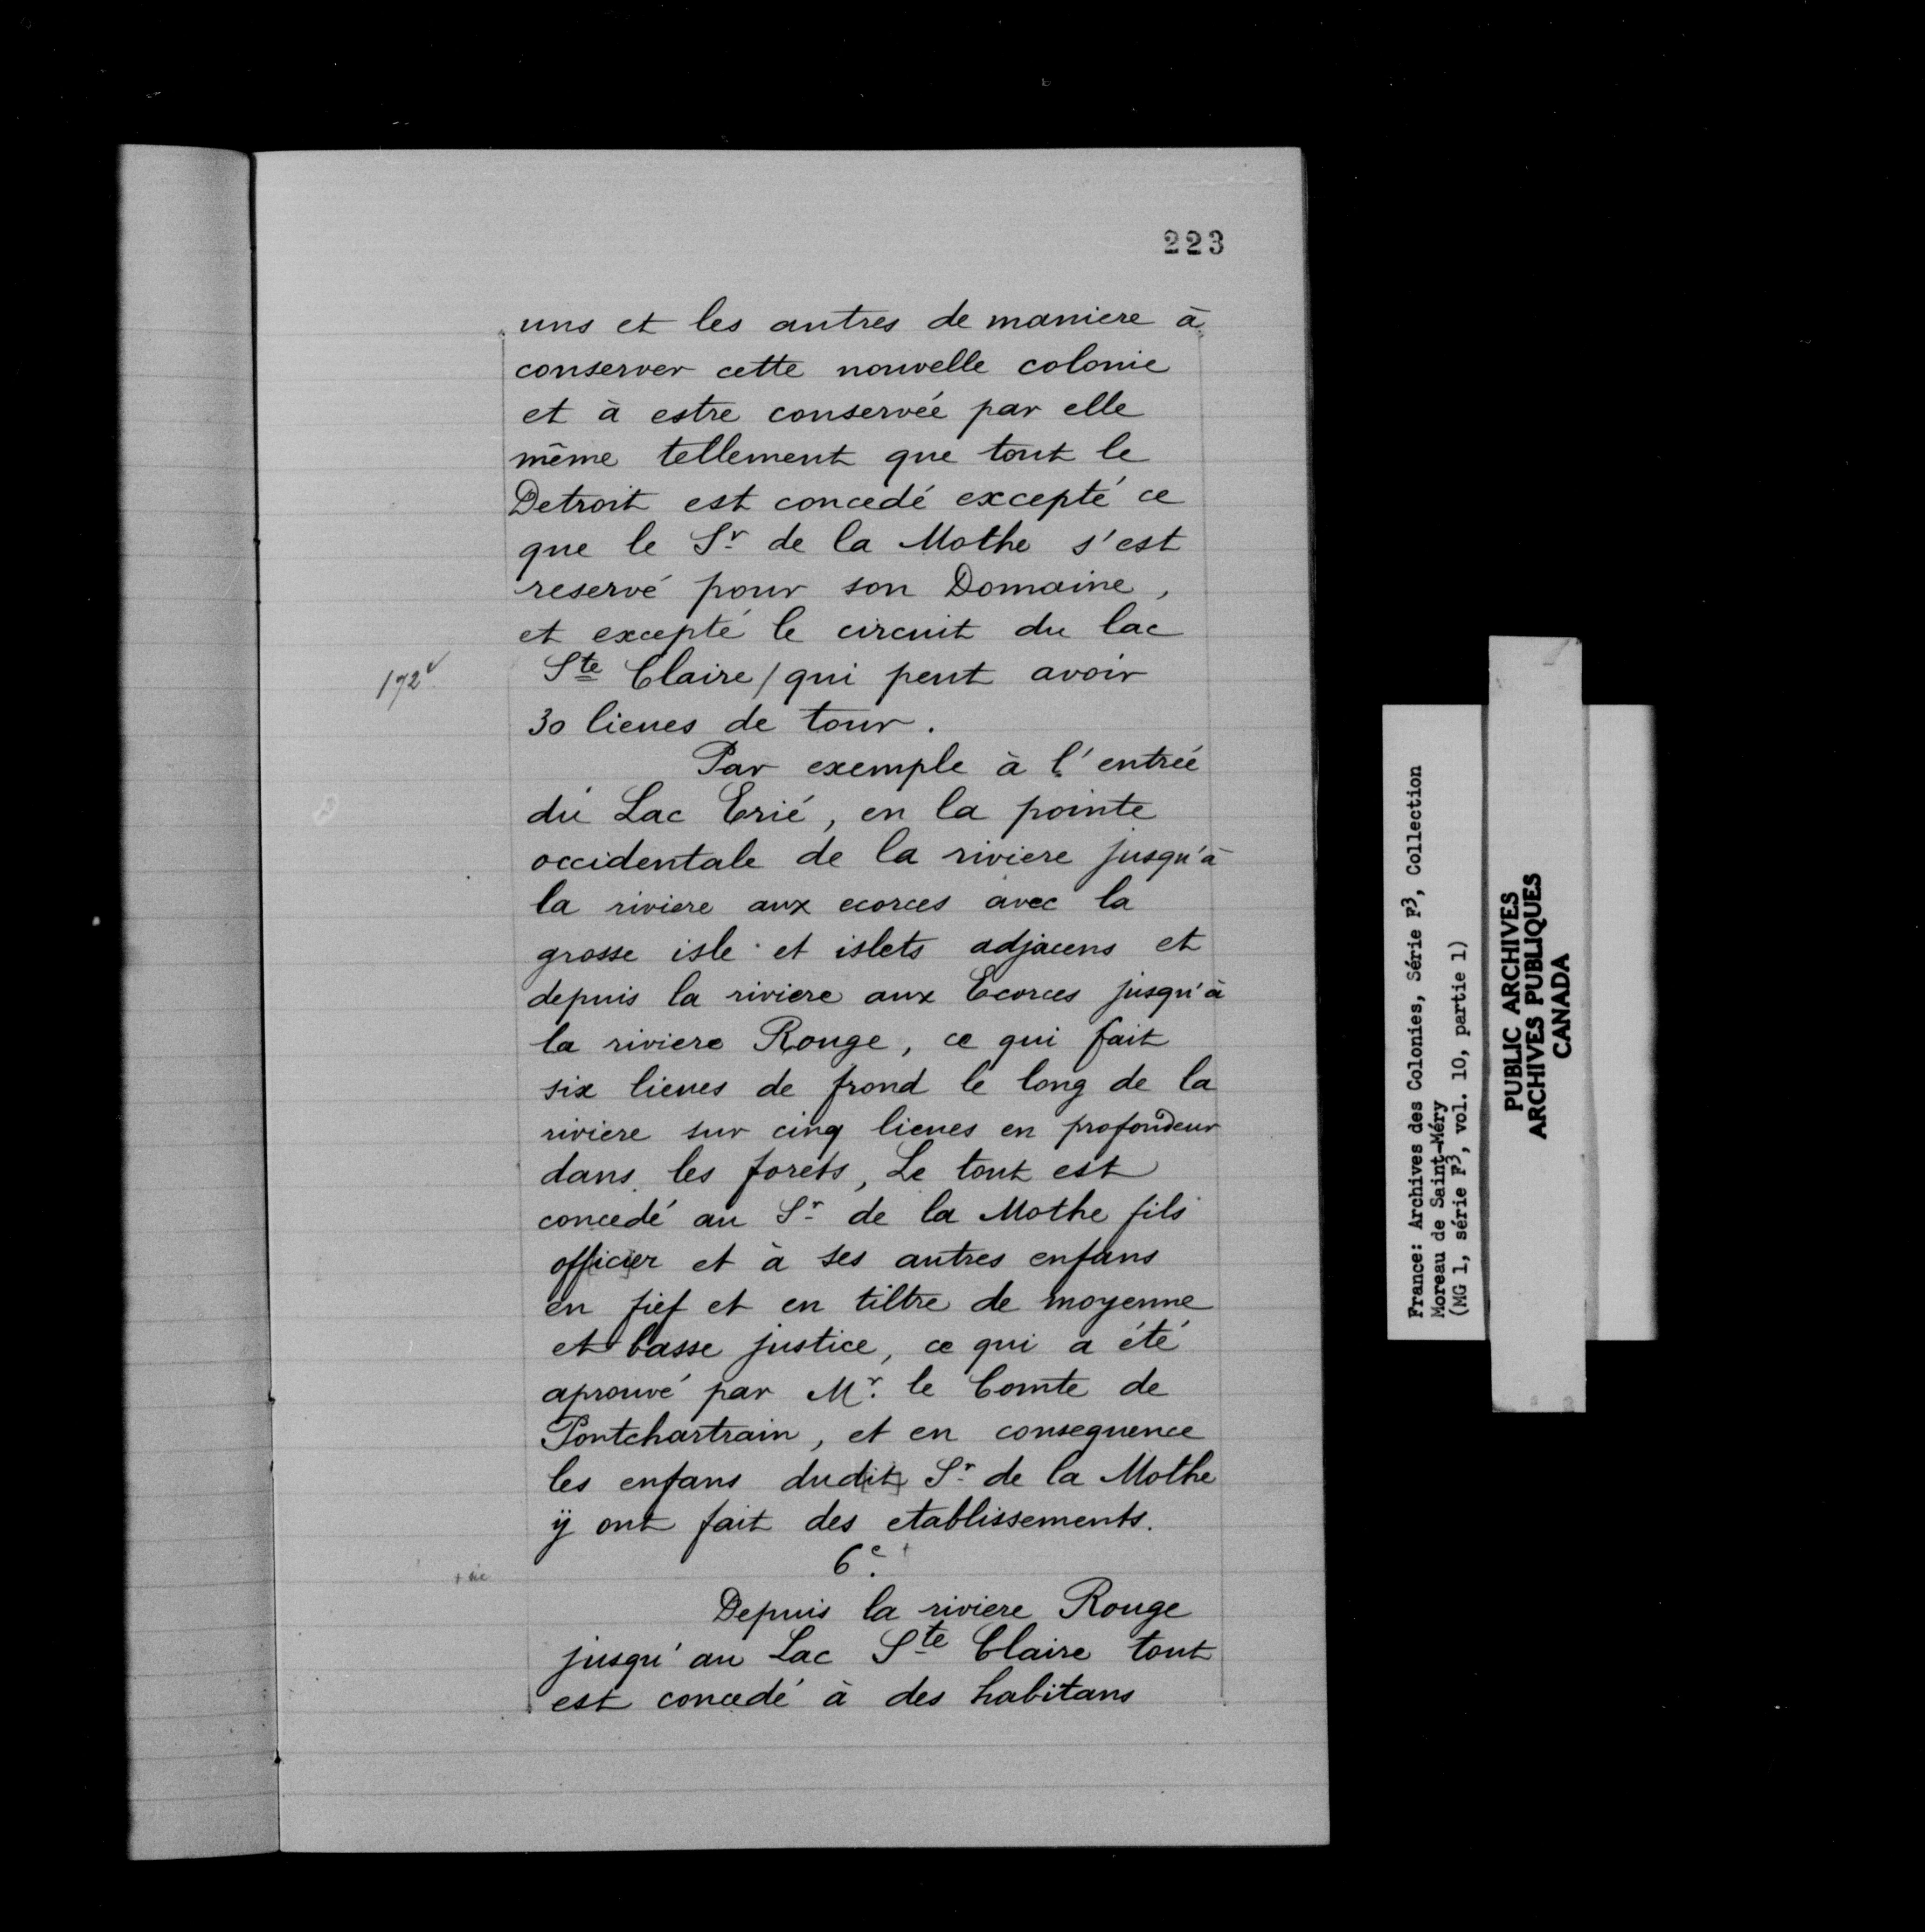 223
uns et les autres de maniere à
conserver cette nouvelle colonie
et à estre conservée par elle
même tellement que tout le
Detroit est concedé excepté ce
que le Sr de la Mothe s'est
reservé pour son Domaine,
et excepté le circuit du lac
172v
Ste Claire / qui peut avoir
30 lieues de tour.
Par exemple à l'entrée
du Lac Erié, en la pointe
occidentale de la riviere jusqu'à
la riviere aux ecorces avec la
grosse isle et islets adjacens et
depuis la riviere aux Ecorces jusqu'à
la riviere Rouge, ce qui fait
six lieues de frond le long de la
riviere sur cinq lieues en profondeur
dans les forets, Le tout est
concedé au Sr de la Mothe fils
officier et à ses autres enfans
en fief et en tiltre de moyenne
et basse justice, ce qui a été
aprouvé par Mr. le Comte de
Pontchartrain, et en consequence
les enfans dud[it] Sr de la Mothe
ÿ ont fait des etablissements.
6e. +
+ sic
Depuis la riviere Rouge
jusqu'au Lac Ste Claire tout
est concedé à des habitans
France: Archives des Colonies, Série F3, Collection
Moreau de Saint-Méry
(MG 1, série F3, vol. 10, partie 1)
PUBLIC ARCHIVES
ARCHIVES PUBLIQUES
CANADA